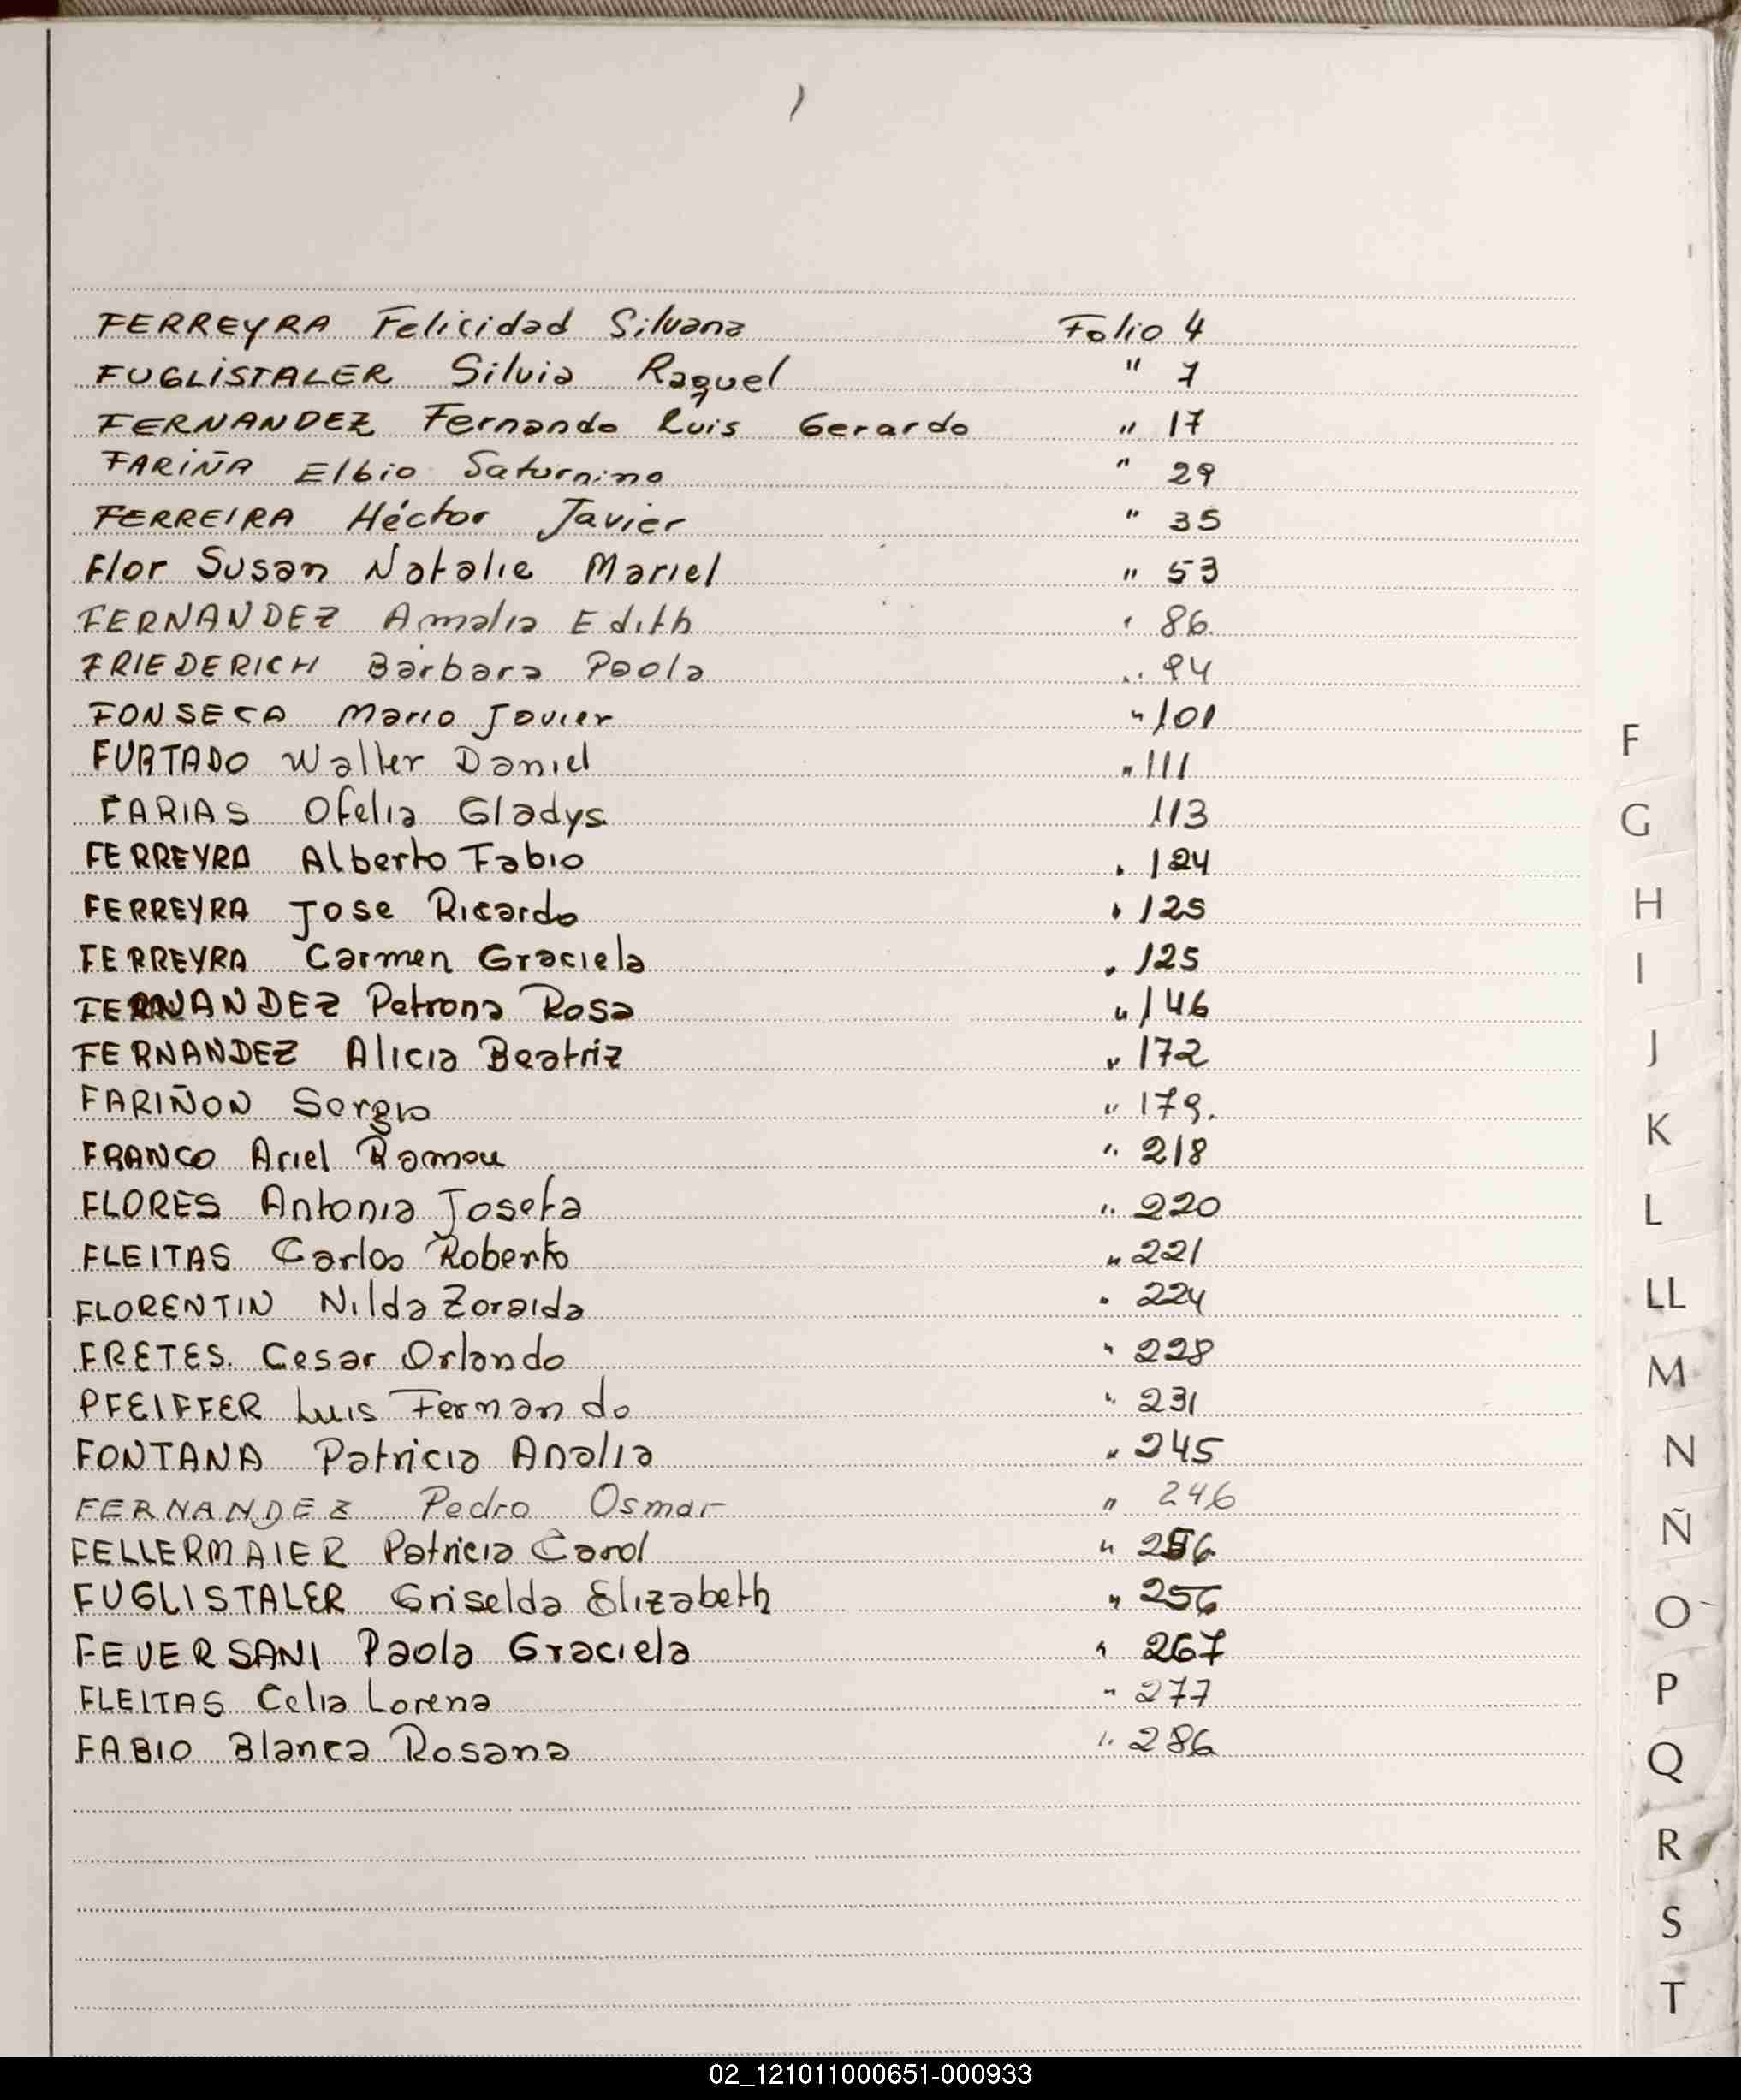 FERREYRA Felicidad Silvana Folio 4
FUGLISTALER Silvia Raquel " 7
FERNANDEZ Fernando Luis Gerardo " 17
FARIÑA Elbio Saturnino " 29
FERREIRA Héctor Javier " 35
Flor Susan Natalie Mariel " 53
FERNANDEZ Amalia Edith " 86
FRIEDERICH Barbara Paola " 94
FONSECA Mario Javier " 101
FURTADO Walter Daniel " 111
FARIAS Ofelia Gladys 113
FERREYRA Alberto Fabio " 124
FERREYRA Jose Ricardo " 125
FERREYRA Carmen Graciela " 125
FERNANDEZ Petrona Rosa " 146
FERNANDEZ Alicia Beatriz " 172
FARIÑON Sergio " 179.
FRANCO Ariel Ramon " 218
FLORES Antonia Josefa " 220
FLEITAS Carlos Roberto " 221
FLORENTIN Nilda Zoraida " 224
FRETES. Cesar Orlando " 228
PFEIFFER Luis Fernando " 231
FONTANA Patricia Analia " 245
FERNANDEZ Pedro Osmar " 246
FELLERMAIER Patricia Carol " 256
FUGLISTALER Griselda Elizabeth " 256
FEVERSANI Paola Graciela " 267
FLEITAS Celia Lorena " 277
FABIO Blanca Rosana " 286
F
G
H
I
J
K
L
LL
M
N
Ñ
O
P
Q
R
S
T
02_121011000651-000933